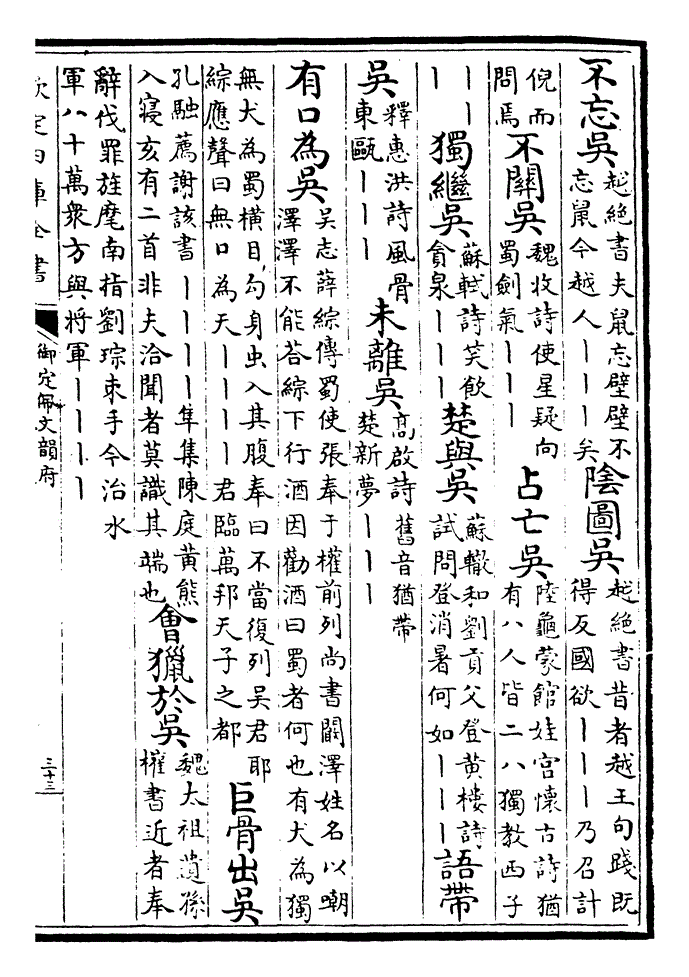 不忘吳越絶書夫鼠忘壁壁不忘鼠今越人丨丨丨矣陰圖吳越絶書昔者越王句踐既得反國欲丨丨丨乃召計
倪而問焉不關吳魏收詩使星疑向蜀劍氣丨丨丨占亡吳陸龜蒙館娃宮懷古詩猶有八人皆二八獨教西子
丨丨丨獨繼吳蘇軾詩笑飲貪泉丨丨丨楚與吳蘇轍和劉貢父登黄樓詩試問登消暑何如丨丨丨語帶
吳釋惠洪詩風骨東甌丨丨丨未離吳高啟詩舊音猶帶楚新夢丨丨丨
有口為吳吳志薛綜傳蜀使張奉于權前列尚書闞澤姓名以嘲澤澤不能荅綜下行酒因勸酒曰蜀者何也有犬為獨
無犬為蜀横目勾身虫入其腹奉曰不當復列吳君耶綜應聲曰無口為天丨丨丨丨君臨萬邦天子之都巨骨出吳
孔融薦謝該書丨丨丨丨隼集陳庭黄熊入寢亥有二首非夫洽聞者莫識其端也會獵於吳魏太祖遺孫權書近者奉
辭伐罪旌麾南指劉琮束手今治水軍八十萬衆方與將軍丨丨丨丨
欽定四庫全書
御定佩文韻府
三十三